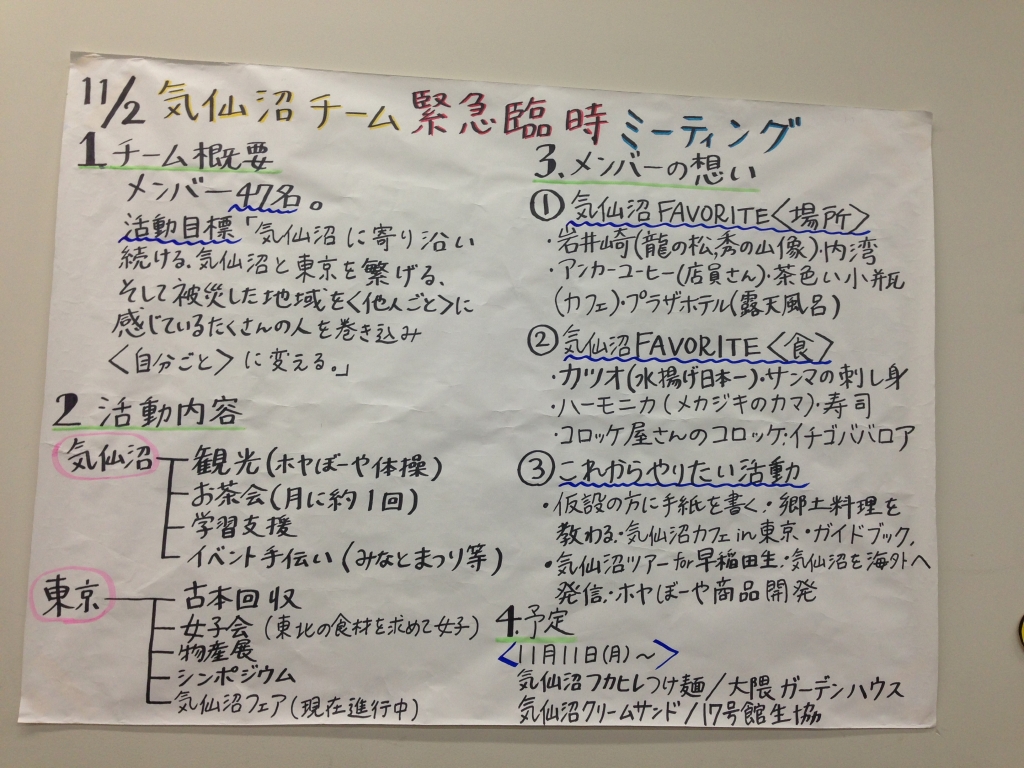 11/2 気仙沼チーム緊急臨時ミーティング
1.チーム概要
メンバー47名。
活動目標「気仙沼に寄り沿い
続ける、気仙沼と東京を繋げる、
そして被災した地域を<他人ごと>に
感じているたくさんの人を巻き込み
<自分ごと>に変える。」
2 活動内容
気仙沼
観光(ホヤぼーや体操)
お茶会(月に約1回)
学習支援
イベント手伝い(みなとまつり等)
東京
古本回収
女子会(東北の食材を求めて女子)
物産展
シンポジウム
気仙沼フェア(現在進行中)
3.メンバーの想い
①気仙沼FAVORITE<場所>
・岩井崎(龍の松,秀の山像)・内湾
・アンカーコーヒー(店員さん)・茶色い小瓶
(カフェ)・プラザホテル(露天風呂)
②気仙沼FAVORITE<食>
・カツオ(水揚げ日本一)・サンマの刺し身
・ハーモニカ(メカジキのカマ)・寿司
・コロッケ屋さんのコロッケ・イチゴババロア
③これからやりたい活動
・仮設の方に手紙を書く・郷土料理を
教わる・気仙沼カフェin東京・ガイドブック
・気仙沼ツアーfor早稲田生・気仙沼を海外へ
発信・ホヤぼーや商品開発
4.予定
<11月11日(月)~>
気仙沼フカヒレつけ麺/大隈ガーデンハウス
気仙沼クリームサンド/17号館生協